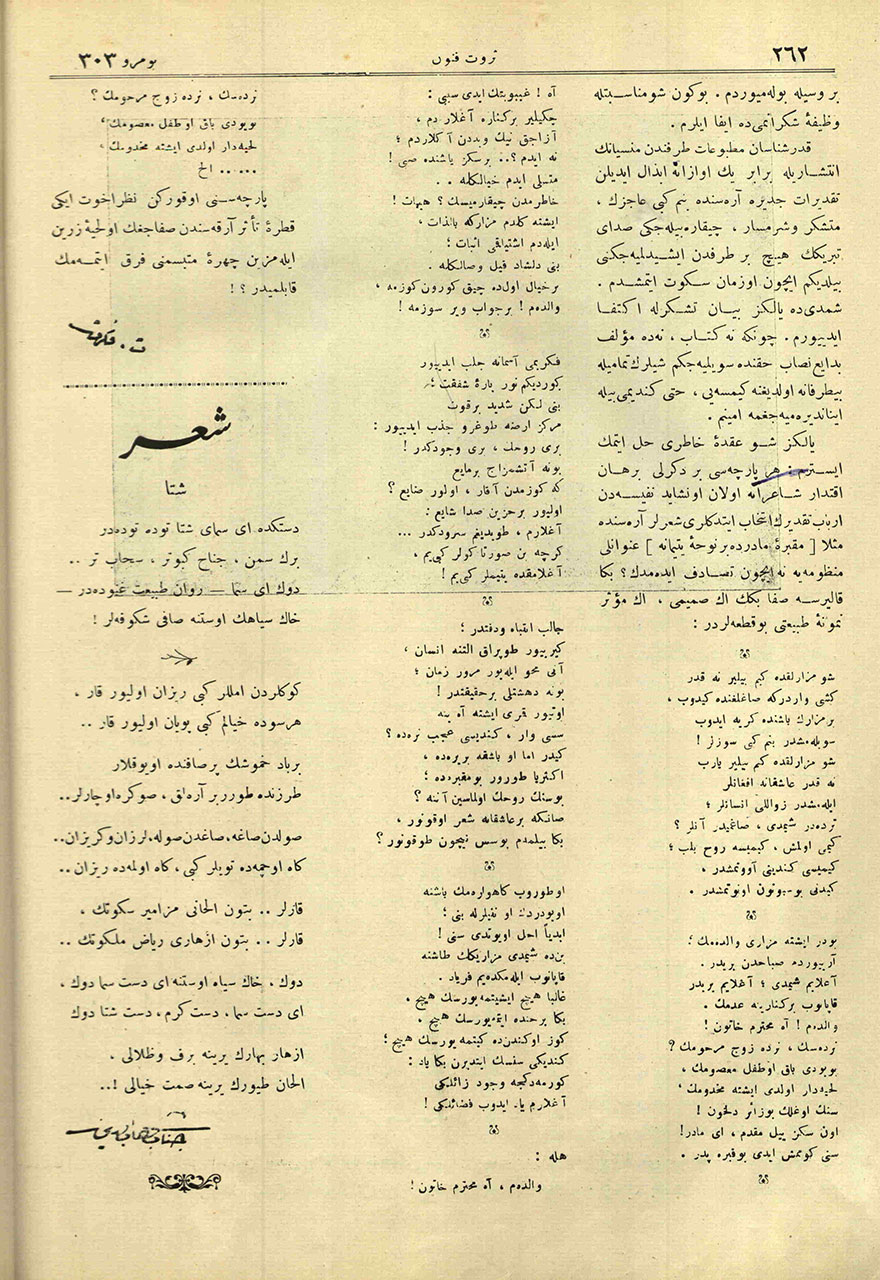 ٢٦٢
ثروت فنون
نومرو ٣٠٣
بر وسیله بوله‌میوردم . بوکون شو مناسبتله
وظیفهٔ شکرانمی‌ده ایفا ایلرم .
قدرشناسان مطبوعات طرفندن منسیاتك
انتشاریله برابر یك اوازانه ابذال ایدیلن
تقدیرات جدیره آره‌سنده بنم کبی عاجزك ،
متشکر و شرمسار ، چیقاره بیله‌جکی صدای
تبریکك هیچ بر طرفدن ایشیدلمیه‌جکنی
بیلدیکم ایچون اوزمان سکوت ایتمشدم .
شمدی‌ده یالکز بیان تشکرله اکتفا
ایدییورم . چونکه نه کتاب ، نه‌ده مؤلف
بدایع نصاب حقنده سویلیه‌جکم شیلرك تمامیله
بیطرفانه اولدیغنه کیمسه‌یی ، حتی کندیمی بیله
ایناندیره‌میه‌جغمه امینم .
یالکز شو عقدهٔ خاطری حل ایتمك
ایسترم : هر پارچه‌سی بر دکرلی برهان
اقتدار شاعرانه اولان اونشاید نفیسه‌دن
ارباب تقدیرك انتخاب ایتدکلری شعرلر آره‌سنده
مثلا [ مقبرهٔ مادرده بر نوحهٔ یتیمانه ] عنوانلی
منظومه‌یه نه ایچون تصادف ایده‌مدك ؟ بکا
قالیرسه صفا بکك اك صمیمی ، اك مؤثر
نمونهٔ طبیعتی بو قطعه‌لردر :
شو مزارلقده کیم بیلیر نه قدر
کشی واردرکه صاغلغنده کیدوب ،
بر مزارك باشنده کریه ایدوب
سویله‌مشدر بنم کبی سوزلر !
شو مزارلقده کیم بیلیر یارب
نه قدر عاشقانه افغانلر
ایله‌مشدر زواللی انسانلر ؛
نرده‌در شیمدی ، صاغمیدر آنلر ؟
کیمی اولمش ، کیمیسه روح بلب ؛
کیمیسی کندینی آووتمشدر ،
کیمی بوسبوتون اونوتمشدر .
بودر ایشته مزاری والده‌مك ؛
آرییوردم صباحدن بریدر .
آغلایم شیمدی ؛ آغلایم بریدر
قاپانوب برکنارینه عدمك .
والده‌م ! آه محترم خاتون !
نرده‌سك ، نرده زوج مرحومك ؟
بویودی باق او طفل معصومك ،
لحیه‌دار اولدی ایشته مخدومك ،
سنك اوغلك بو زائر دلخون !
اون سکز ییل مقدم ، ای مادر !
سنی کوممش ایدی بو قبره پدر .
آه ! غیبوبتك ایدی سببی :
چکیلیر برکناره آغلاردم ،
آزاجق نیك و بددن آکلاردم ؛
نه ایدم ؟.. بر سکز یاشنده صبی !
متسلی ایدم خیالکله . .
خاطرمدن چیقارمیسك ؟ هیهات !
ایشته کلدم مزارکه بالذات ،
ایله‌دم اشتیاقمی اثبات ؛
بنی دلشاد قیل وصالکله .
بر خیال اول‌ده چیق کورون کوزمه ،
والده‌م ! بر جواب ویر سوزمه !
فکریمی آسمانه جلب ایدییور
کوردیکم نور پارهٔ شفقت ؛
بنی لکن شدید بر قوت
مرکز ارضه طوغرو جذب ایدییور :
بری روحك ، بری وجودکدر !
بونه آتشمزاج برمایع
که کوزمدن آقار ، اولور ضایع ؟
اولیور بر حزین صدا شایع :
آغلارم ، طویدیغم سرودکدر ...
کرچه بن صورتا کولر کبی‌یم ،
آغلامقده یتیملر کبی‌یم !
جالب انتباه و دقتدر ؛
کیرییور طوپراق التنه انسان ،
آنی محو ایله‌یور مرور زمان ؛
بونه دهشتلی بر حقیقتدر !
اوتیور قمری ایشته آه ینه
سسی وار ، کندیسی عجب نره‌ده ؟
کیدر اما او باشقه بریره‌ده ،
اکثریا طورور بو مقبره‌ده ؛
بوسنك روحك اولماسین آننه ؟
صانکه بر عاشقانه شعر اوقونور ،
بکا بیلمه‌م بو سس نیچون طوقونور ؟
اوطوروب کاهواره‌مك باشنه
اویودردك او نغمه‌لرله بنی ؛
ابدیاً اجل اویوتدی سنی !
بن‌ده شیمدی مزاریکك طاشنه
قاپانوب ایله‌مکده‌یم فریاد .
غالبا هیچ ایشیتمه‌یورسك هیچ ،
بکا برحنده ایتمه‌یورسك هیچ ،
کوز اوکندن‌ده کیتمه‌یورسك هیچ ؛
کندیکی سنسك ایتدیرن بکا یاد :
کورمه‌دکجه وجود زائلکی
آغلارم یاد ایدوب فضائلکی !
هله :
والده‌م ، آه محترم خاتون !
نرده‌سك ، نرده زوج مرحومك ؟
بویودی باق او طفل معصومك ،
لحیه‌دار اولدی ایشته مخدومك ،
...... الخ
پارچه‌سنی اوقورکن نظر اخوت ایکی
قطرهٔ تأثر آرقه‌سندن صفاجغك او لحیهٔ زرین
ایله مزین چهرهٔ متبسمنی فرق ایتمه‌مك
قابلمیدر ؟ !
ت . فکرت
شعر
شتا
دستکده ای سمای شتا توده توده‌در
برك سمن ، جناح کبوتر ، سحاب تر ..
دوك ای سما — روان طبیعت غنوده‌در —
خاك سیاهك اوستنه صافی شکوفه‌لر !
کوکلردن امللر کبی ریزان اولیور قار ،
هر سوده خیالم کبی پویان اولیور قار ..
بر باد خموشك پر صافنده اویوقلار
طرزنده طورر بر آره‌لق ، صوکره اوچارلر..
صولدن صاغه، صاغدن صوله، لرزان و کریزان ..
کاه اوچمه‌ده تویلر کبی ، کاه اولمه‌ده ریزان ..
قارلر .. بتون الحانی مزامیر سکوتك ،
قارلر .. بتون ازهاری ریاض ملکوتك ..
دوك ، خاك سیاه اوستنه ای دست سما دوك ،
ای دست سما ، دست کرم ، دست شتا دوك
ازهار بهارك یرینه برف و ظلالی ،
الحان طیورك یرینه صمت خیالی !..
جناب شهاب‌الدین